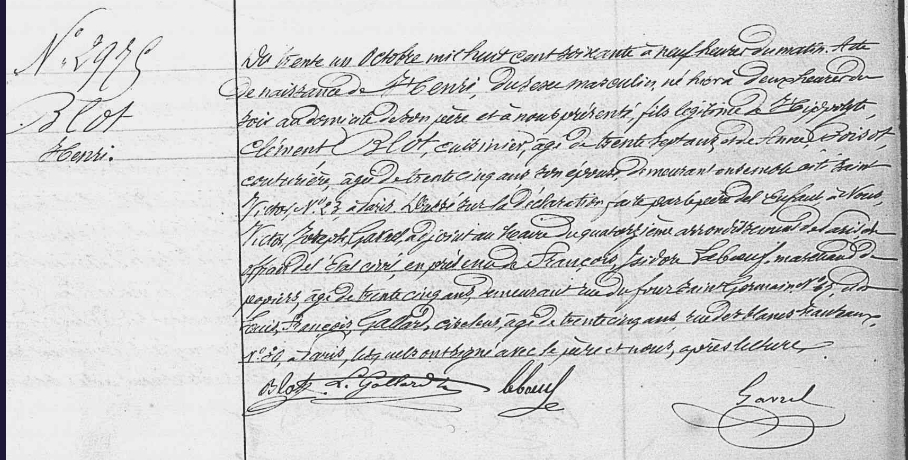 N° 2975
Blot
Henri.
Du trente un Octobre mil huit cent soixante à neuf heures du matin. Acte
de naissance de Henri, du sexe masculin, né hier à deux heures du
soir au domicile de son père et à nous présenté, fils légitime de Hippolyte,
Clément Blot, cuisinier, âgé de trente sept ans, et de Anne
couturière, âgée de trente cinq ans son épouse, demeurant ensemble Saint
Victor N° 23, à Paris. Dressé sur la déclaration faite par le père de l'Enfant à Nous,
Victor, Joseph adjoint au Maire du arrondissement de Paris et
officier de l'Etat civil, en présence de François, Isidore Leboeuf, marchand de
papiers, âgé de trente cinq ans, demeurant rue du four Saint Germain N° et de
Louis, François, Gallard, ciseleur, âgé de trente cinq ans, rue des blancs Manteaux,
à Paris, lesquels ont signé avec le père et nous, après lecture
Blot L. Gallard leboeuf